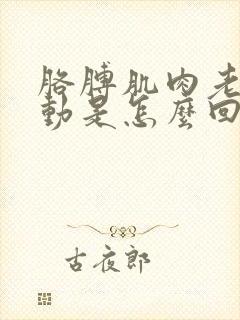 胳膊肌肉老
動是怎麼回
古夜郎